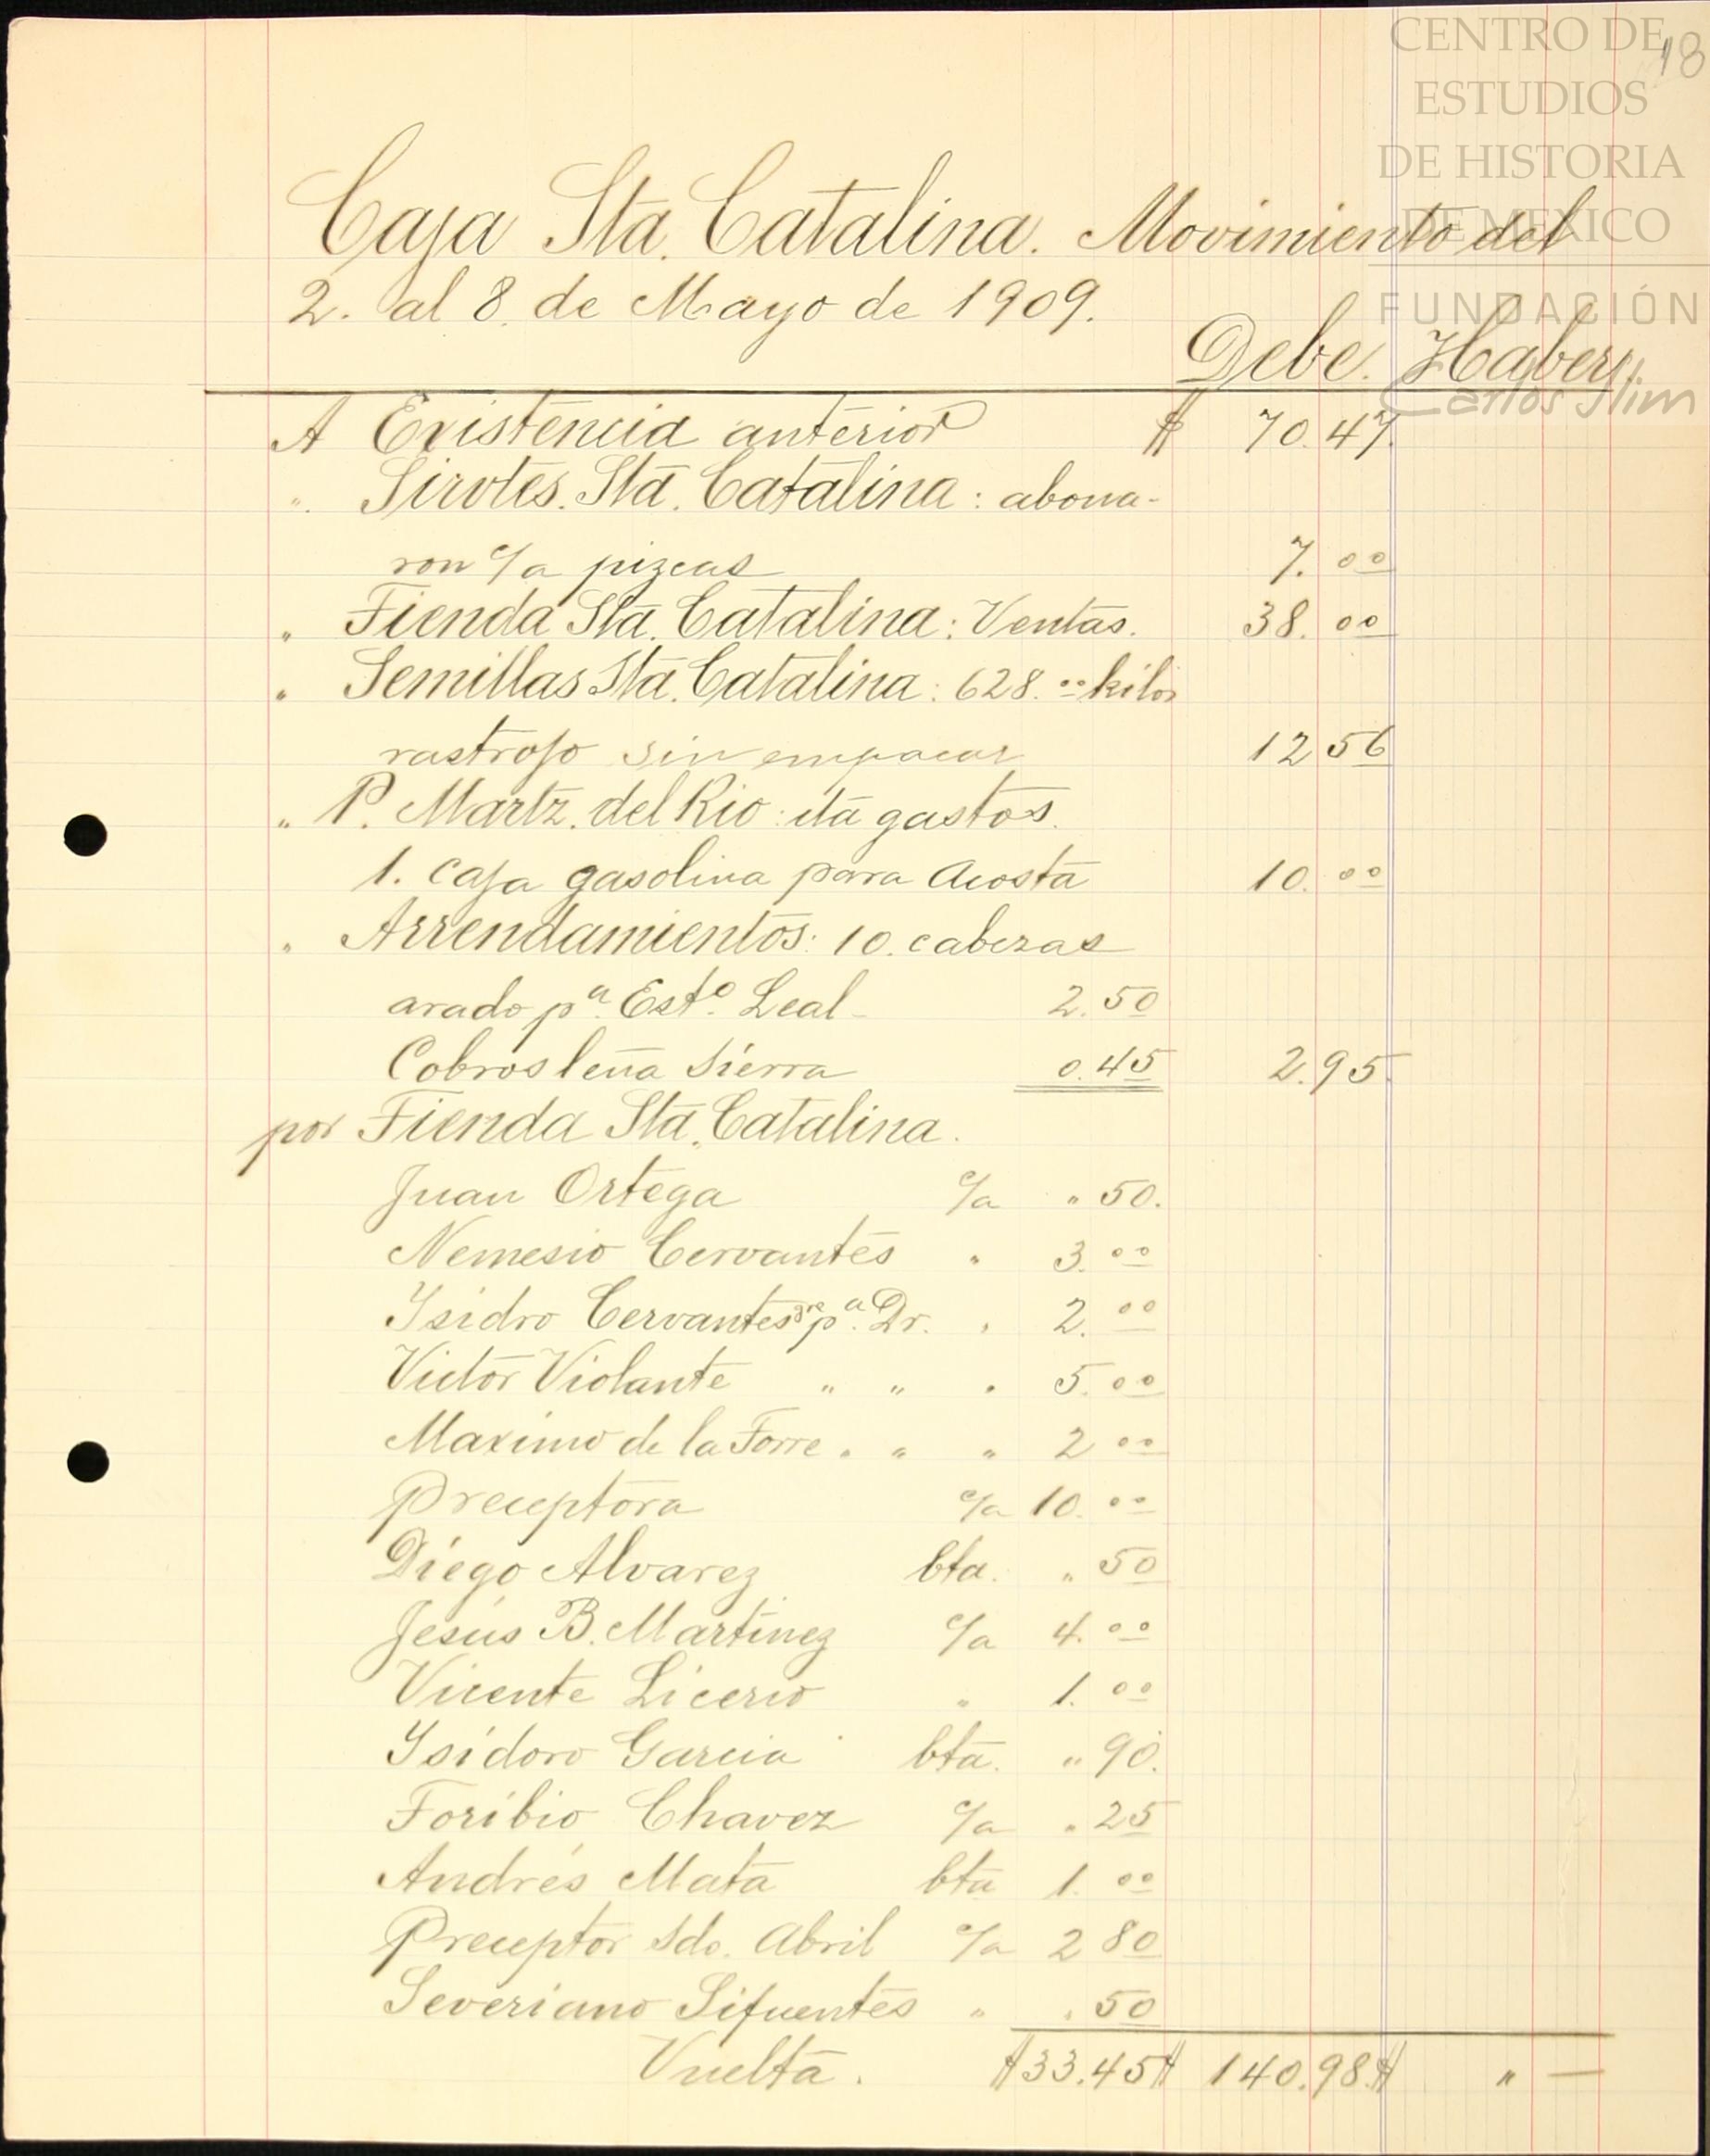 CENTRO DE
ESTUDIOS
DE HISTORIA
DE MEXICO
FUNDACIÓN
Carlos Slim
18
Caja Sta. Catalina. Movimiento del
2. al 8. de Mayo de 1909.
Debe. Haber.
A Existencia anterior $ 70.47.
". Sirvtes. Sta. Catalina: abona-
ron c/a pizcas 7.00
" Tienda Sta. Catalina: Ventas. 38.00
" Semillas Sta. Catalina: 628.00 kilos
rastrojo sin empacar 12 56
" P. Martz. del Rio: cta gastos.
1. caja gasolina para Acosta 10.00
" Arrendamientos: 10. cabezas
arado pa. Esto. Leal 2.50
Cobros leña Sierra 0.45 2.95
por Tienda Sta. Catalina.
Juan Ortega c/a " 50.
Nemesio Cervantes " 3.00
Ysidro Cervantes pa. Dr. " 2.00
Victor Violante " " " 5.00
Maximo de la Torre " " " 2 00
Preceptora c/a 10.00
Diego Alvarez bta. " 50
Jesús B. Martinez c/a 4.00
Vicente Licerio " 1.00
Ysidoro Garcia bta. " 90.
Toribio Chavez c/a " 25
Andrés Mata bta 1.00
Preceptor Sdo. Abril c/a 2 80
Severiano Sifuentes " " 50
Vuelta. $33.45 $ 140.98 $ " —